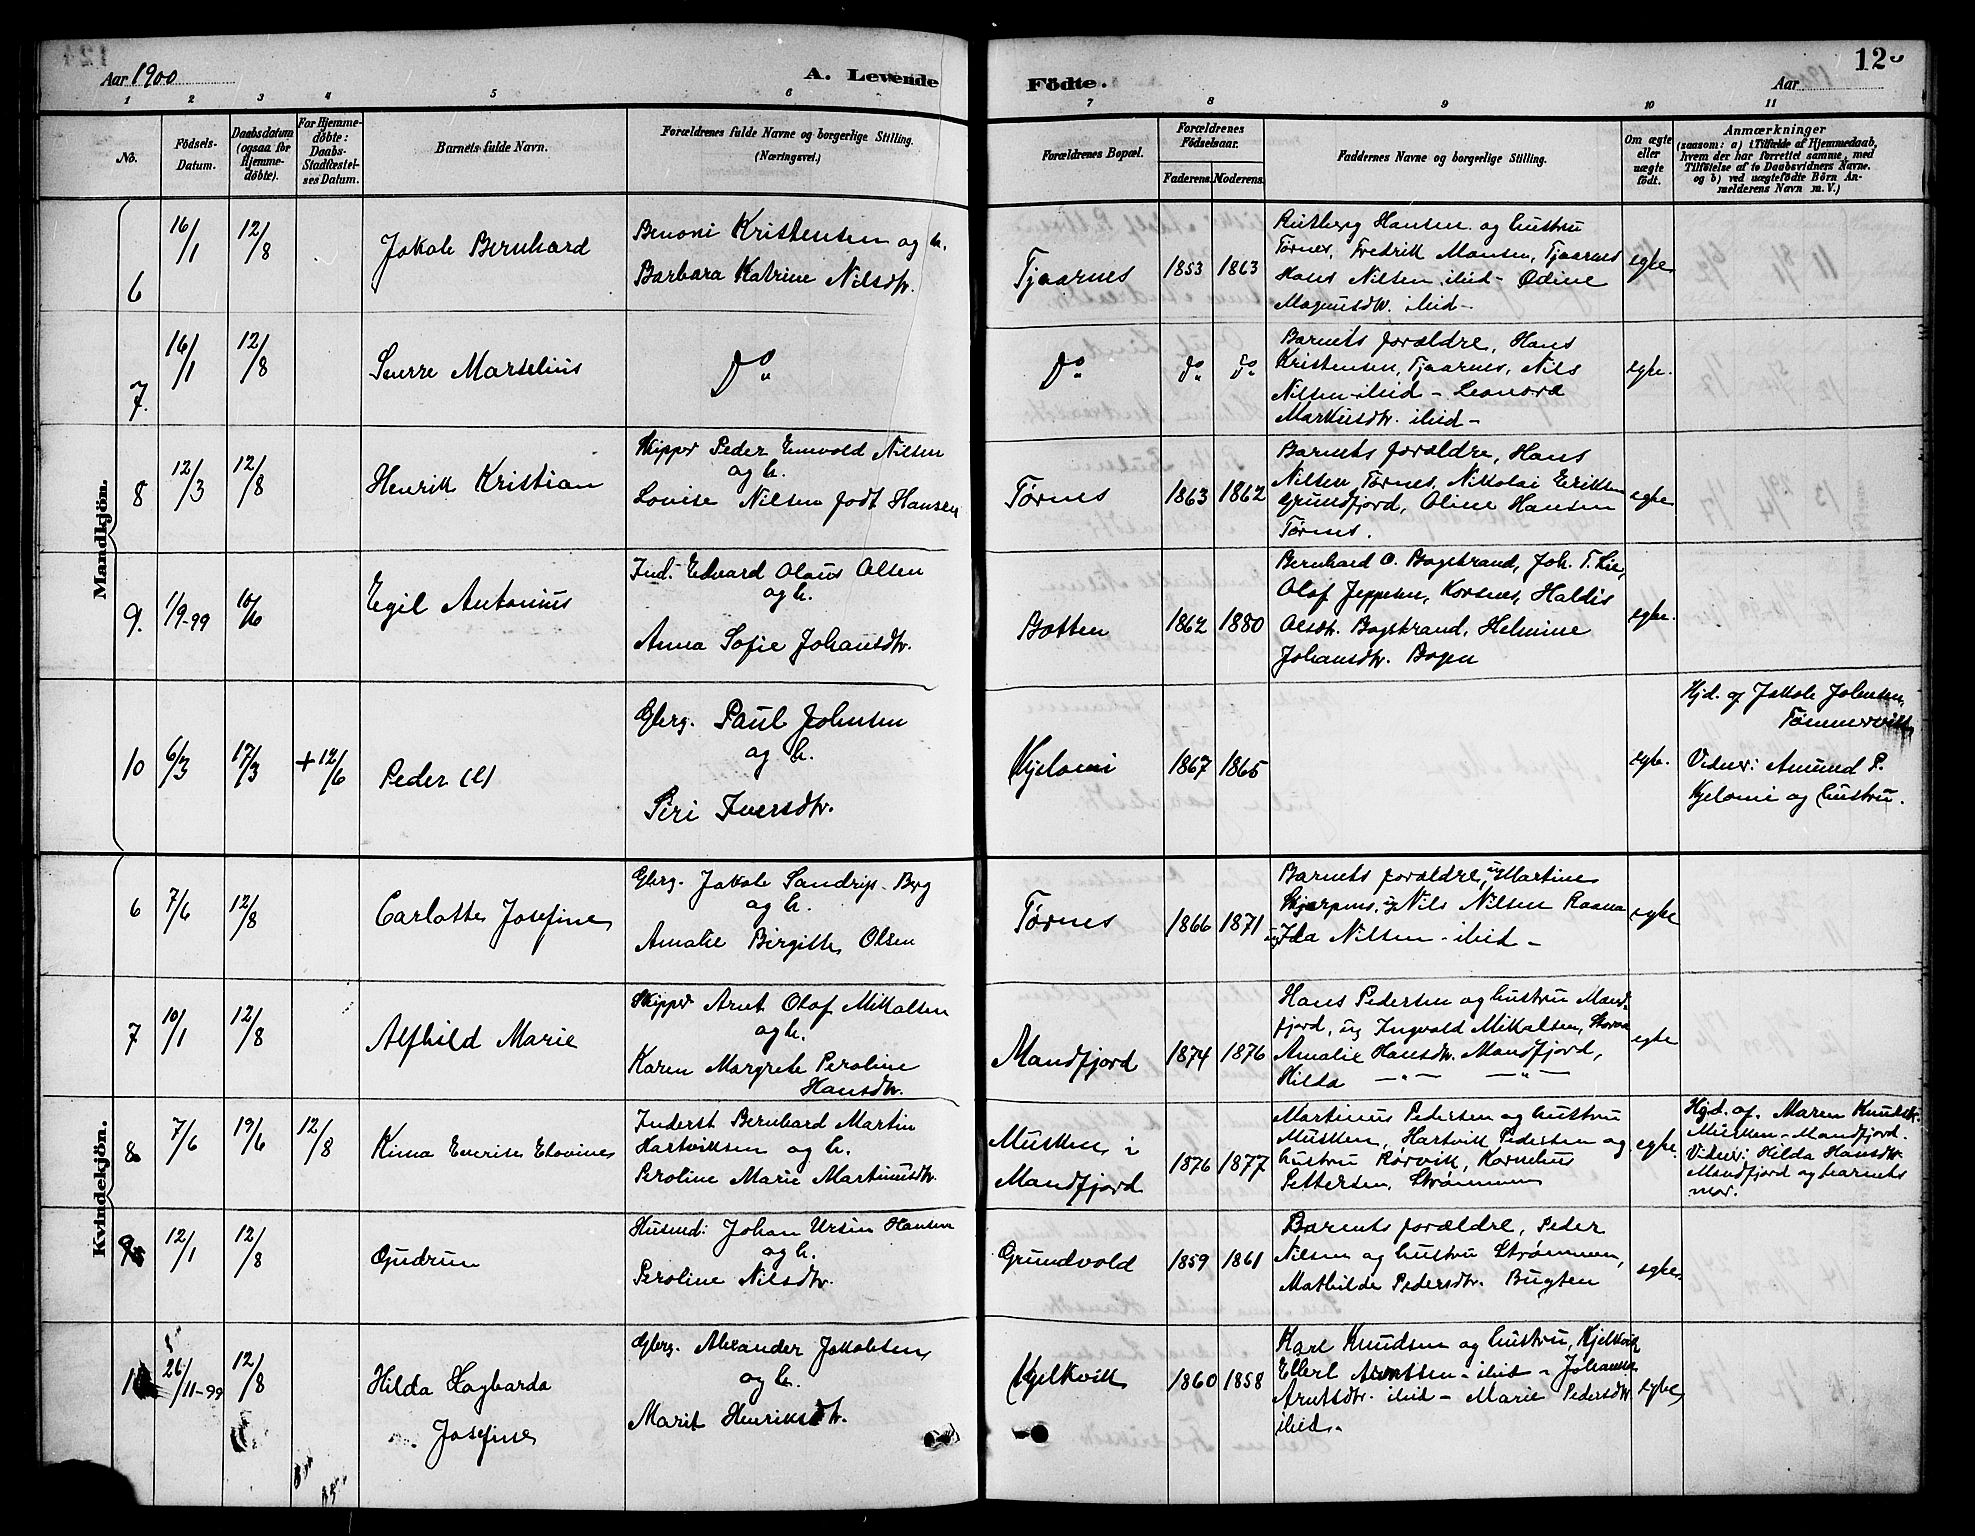 Aar 1900
A. Levende
Födte.
Aar
12
1
2
3
4
5
6
7
8
9
10
11
No.
Födsels-
Datum.
Daabsdatum
(ogsaa for
Hjemme-
döbte).
For Hjemme-
döbte:
Daabs-
Stadfæstel-
ses Datum.
Barnets fulde Navn.
Forældrenes fulde Navne og borgerlige Stilling.
(Næringsvei.)
Forældrenes Bopæl.
Forældrenes
Födselsaar.
Faderens.
Moderens.
Faddernes Navne og borgerlige Stilling.
Om ægte
eller
uægte
födt.
Anmærkninger
(saasom: a) i Tilfælde af Hjemmedaab,
hvem der har forrettet samme, med
Tilföielse af to Daabsvidners Navne.
og b) ved uægtefödte Börn An-
melderens Navn m. V.)
Mandkjön.
6
16/1
12/8
Jakob Bernhard
Benoni Kristensen og h.
Barbara Katrine Nilsdtr.
Tjaarnes
1853
1863
Hansen og hustru
Tørnes, Fredrik Monsen, Tjaarnes
Hans Nilsen ibid - Odine
Magnusdtr. ibid -
egte.
7.
16/1
12/8
Sverre Marselius
Do
Do
do
do
Barnets forældre, Hans
Kristensen, Tjaarnes, Nils
Nilsen ibid - Leonora
Markusdtr. ibid -
egte.
8
12/3
12/8
Henrik Kristian
Skipper Peder Enevold Nilsen
og h.
Lovise Nilsen født Hansen
Tørnes
1863
1862
Barnets forældre, Hans
Nilsen, Tørnes, Nikolai Eriksen
Grundfjord, Oline Hansen
Tørnes.
egte
9.
1/9-99
10/6
Egil Antonius
Ind. Edvard Olaus Olsen
og h.
Anna Sofie Johansdtr.
Botten
1862
1880
Bernhard O. Bogstrand, Joh. T. Lie,
Olaf Jeppesen, Korsnes, Haldis
Olsdtr. Bogstrand, Helmine
Johansdtr. Bogen
egte.
10
6/3
17/3
+12/6
Peder (El)
Gbrg. Paul Johnsen
og h.
Siri Iversdtr.
Kjelomi
1867
1865
egte.
Hjd. af Jakob Johnsen,
Tømmervik
Vidner: Amund P.
Kjelomi og hustru.
Kvindekjön.
6
7/6
12/8
Carlotte Josefine
Gbrg. Jakob Sandrip - Berg
og h.
Amalie Birgitte Olsen
Tørnes
1866
1871
Barnets forældre, ug Martine
Skjarpnes, ug Nils Nilsen Raana
ug Ida Nilsen - ibid -
egte
7
10/1
12/8
Alfhild Marie
Skipper Arnt Olaf Mikalsen
og h.
Karen Margrete Peroline
Hansdtr.
Mandfjord
1874
1876
Hans Pedersen og hustru Mand-
fjord, ug Ingvald Mikalsen,
Amalie Hansdtr. Mandfjord,
Hilda — " — — " —
egte
8
7/6
19/6
12/8
Kima Everise Elovine
Inderst Bernhard Martin
Hartviksen og h.
Peroline Marie Martinusdtr.
Musken i
Mandfjord
1876
1877
Martinus Pedersen og hustru
Musken, Hartvik Pedersen og
hustru Rørvik, Kornelius
Pettersen, Strømmen
egte.
Hjd. af. Maren Knutsdtr.
Musken - Mandfjord.
Vidner: Hilda Hansdtr.
Mandfjord og barnets
mor.
9
12/1
12/8
Gudrun
Husmd: Johan Ursin Hansen
og h.
Peroline Nilsdtr.
Grundvold
1859
1861
Barnets forældre, Peder
Nilsen og hustru Strømmen,
Mathilde Pedersdtr. Bugten
egte.
10
26/11-99
12/8
Hilda Hagbarda
Josefine
Gbrg. Alexander Jakobsen
og h.
Marit Henriksdtr.
Kjelkvik
1860
1858
Karl Knudsen og hustru, Kjelkvik
Ellert Arntsen - ibid - Johanna
Arntsdtr. ibid - Marie Pedersdtr.
ibid.
egte